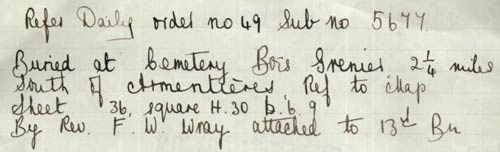 Refer Daily order no 49 Sub no 5677.
Buried at Cemetery Bois Grenier 2¼ miles
South of Armentières. Ref to Map
Sheet 36, square H.30 b.6.9
By Rev. F. W. Wray attached to 13th Bn